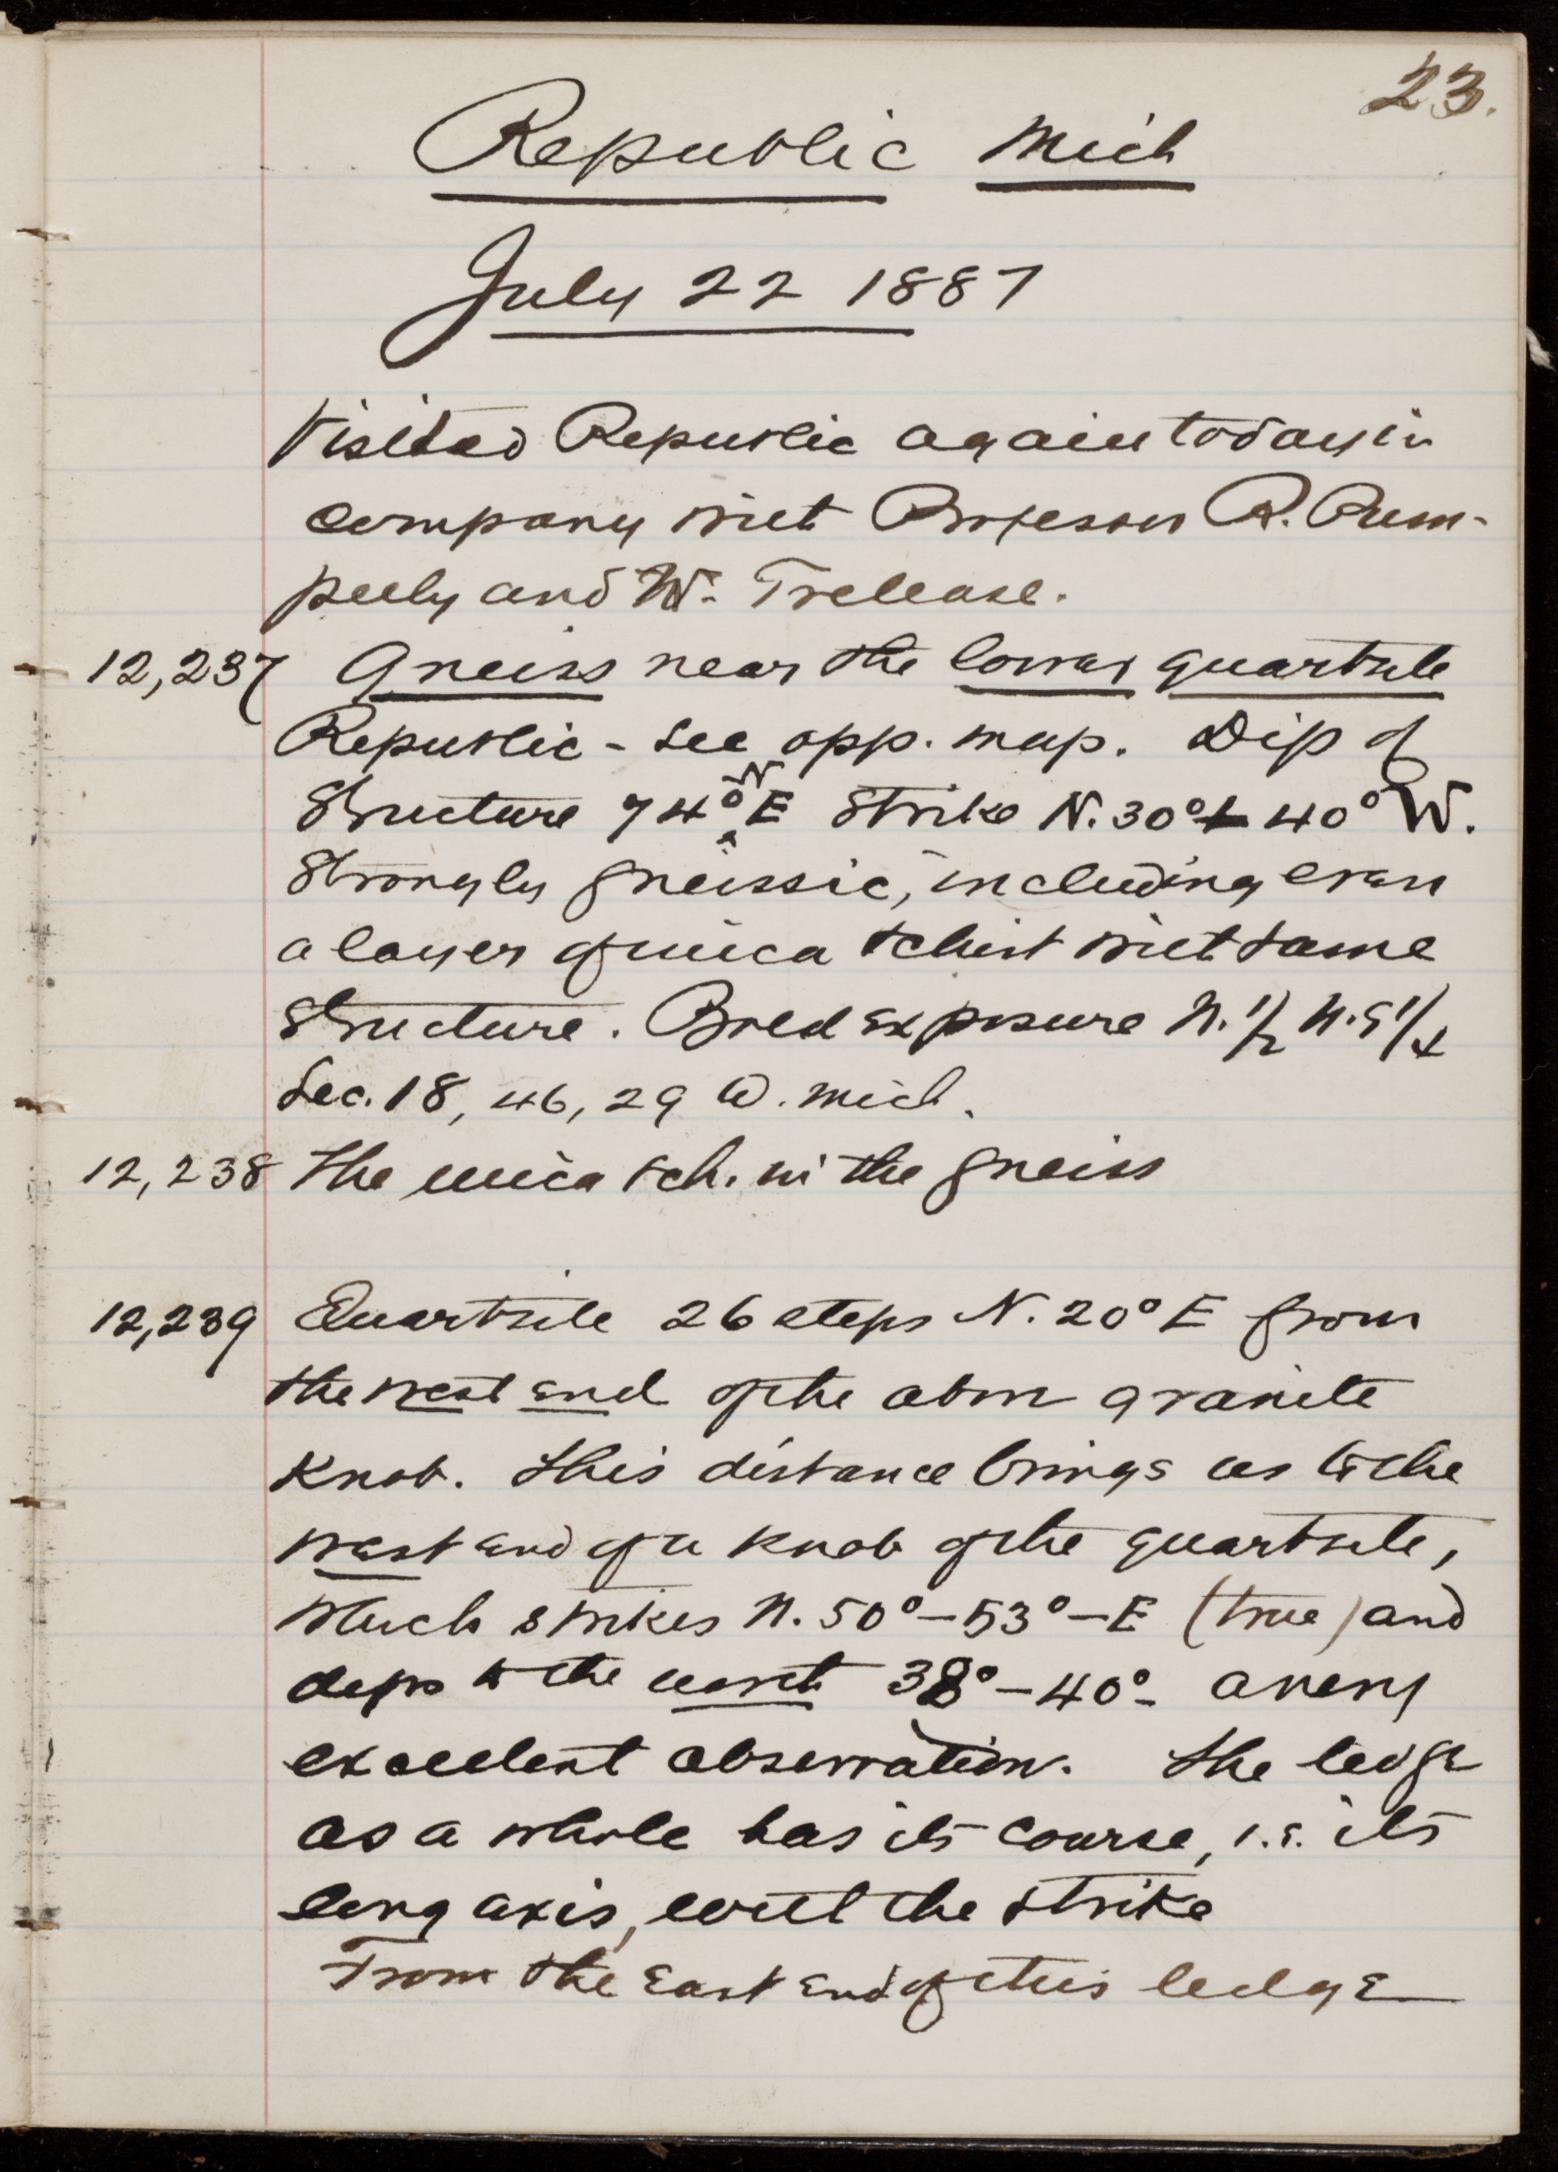 23.
Republic Mich
July 22 1887
Visited Republic again today in
company with Professor R. Pum-
pelly and W. Trelease.
12,237 Gneiss near the lower quartzite
Republic - See opp. map. Dip of
Structure 74° N E Strike N. 30° & 40° W.
Strongly gneissic, including even
a layer of mica schist with same
structure. Bold exposure N. 1/2 N.E 1/4
Sec. 18, 46, 29 W. Mich.
12,238 The mica sch. in the gneiss
12,239 Quartzite 26 steps N. 20° E from
the west end of the above granite
Knob. This distance brings us to the
west end of a knob of the quartzite,
which strikes N. 50°-53°-E (true) and
dips to the north 38°-40°- a very
excellent observation. The ledge
as a whole has its course, i.e. its
long axis, with the strike
From the East end of this ledge